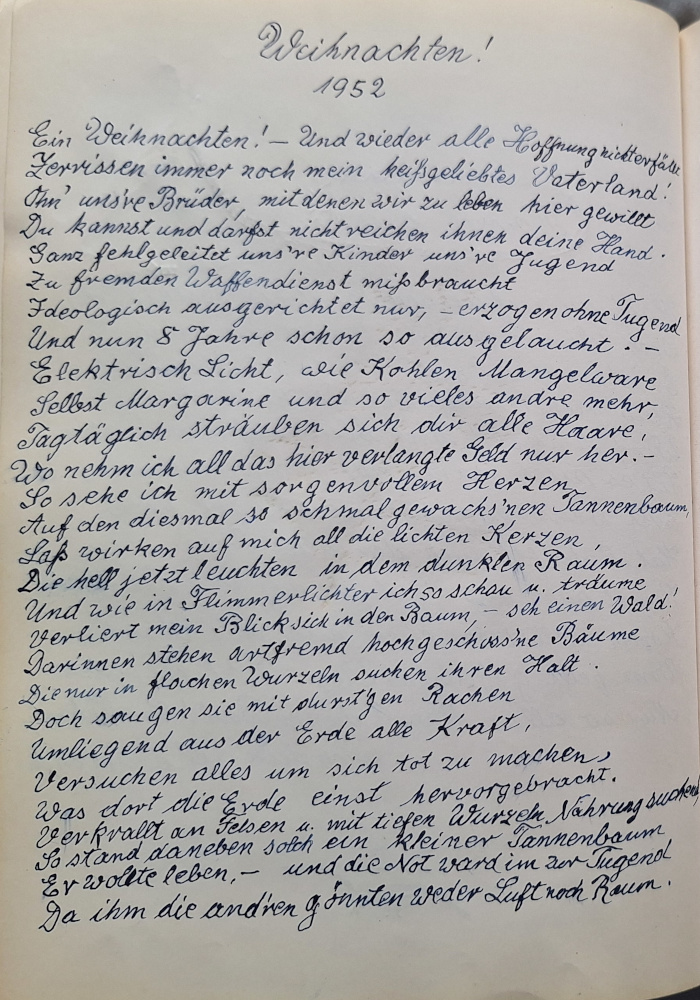 Weihnachten!
1952
Ein Weihnachten! – Und wieder alle Hoffnung nicht erfüllt
Zerrissen immer noch mein heißgeliebtes Vaterland!
Ohn' uns're Brüder, mit denen wir zu leben hier gewillt
Du kannst und darfst nicht reichen ihnen deine Hand.
Ganz fehlgeleitet uns're Kinder uns're Jugend
Zu fremden Waffendienst mißbraucht
Ideologisch ausgerichtet nur, – erzogen ohne Tugend
Und nun 8 Jahre schon so ausgelaucht. –
Elektrisch Licht, wie Kohlen Mangelware
Selbst Margarine und so vieles andre mehr,
Tagtäglich sträuben sich dir alle Haare,
Wo nehm ich all das hier verlangte Geld nur her. –
So sehe ich mit sorgenvollem Herzen
Auf den diesmal so schmal gewachs'nen Tannenbaum,
Laß wirken auf mich all die lichten Kerzen,
Die hell jetzt leuchten in dem dunklen Raum.
Und wie in Flimmerlichter ich so schau u. träume
Verliert mein Blick sich in den Baum, – seh einen Wald!
Darinnen stehen artfremd hochgeschoss'ne Bäume
Die nur in flachen Wurzeln suchen ihren Halt.
Doch saugen sie mit durst'gen Rachen
Umliegend aus der Erde alle Kraft,
Versuchen alles um sich tot zu machen,
Was dort die Erde einst hervorgebracht.
Verkrallt an Felsen u. mit tiefen Wurzeln, Nahrung suchend
So stand daneben solch ein kleiner Tannenbaum
Er wollte leben, – und die Not ward im zur Tugend
Da ihm die and'ren gönnten weder Luft noch Raum.